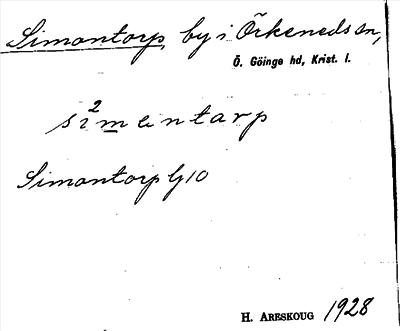 Simontorp, by i Örkeneds sn,
Ö. Göinge hd, Krist. l.
si²mentarp
Simontorp G10
H. Areskoug 1928